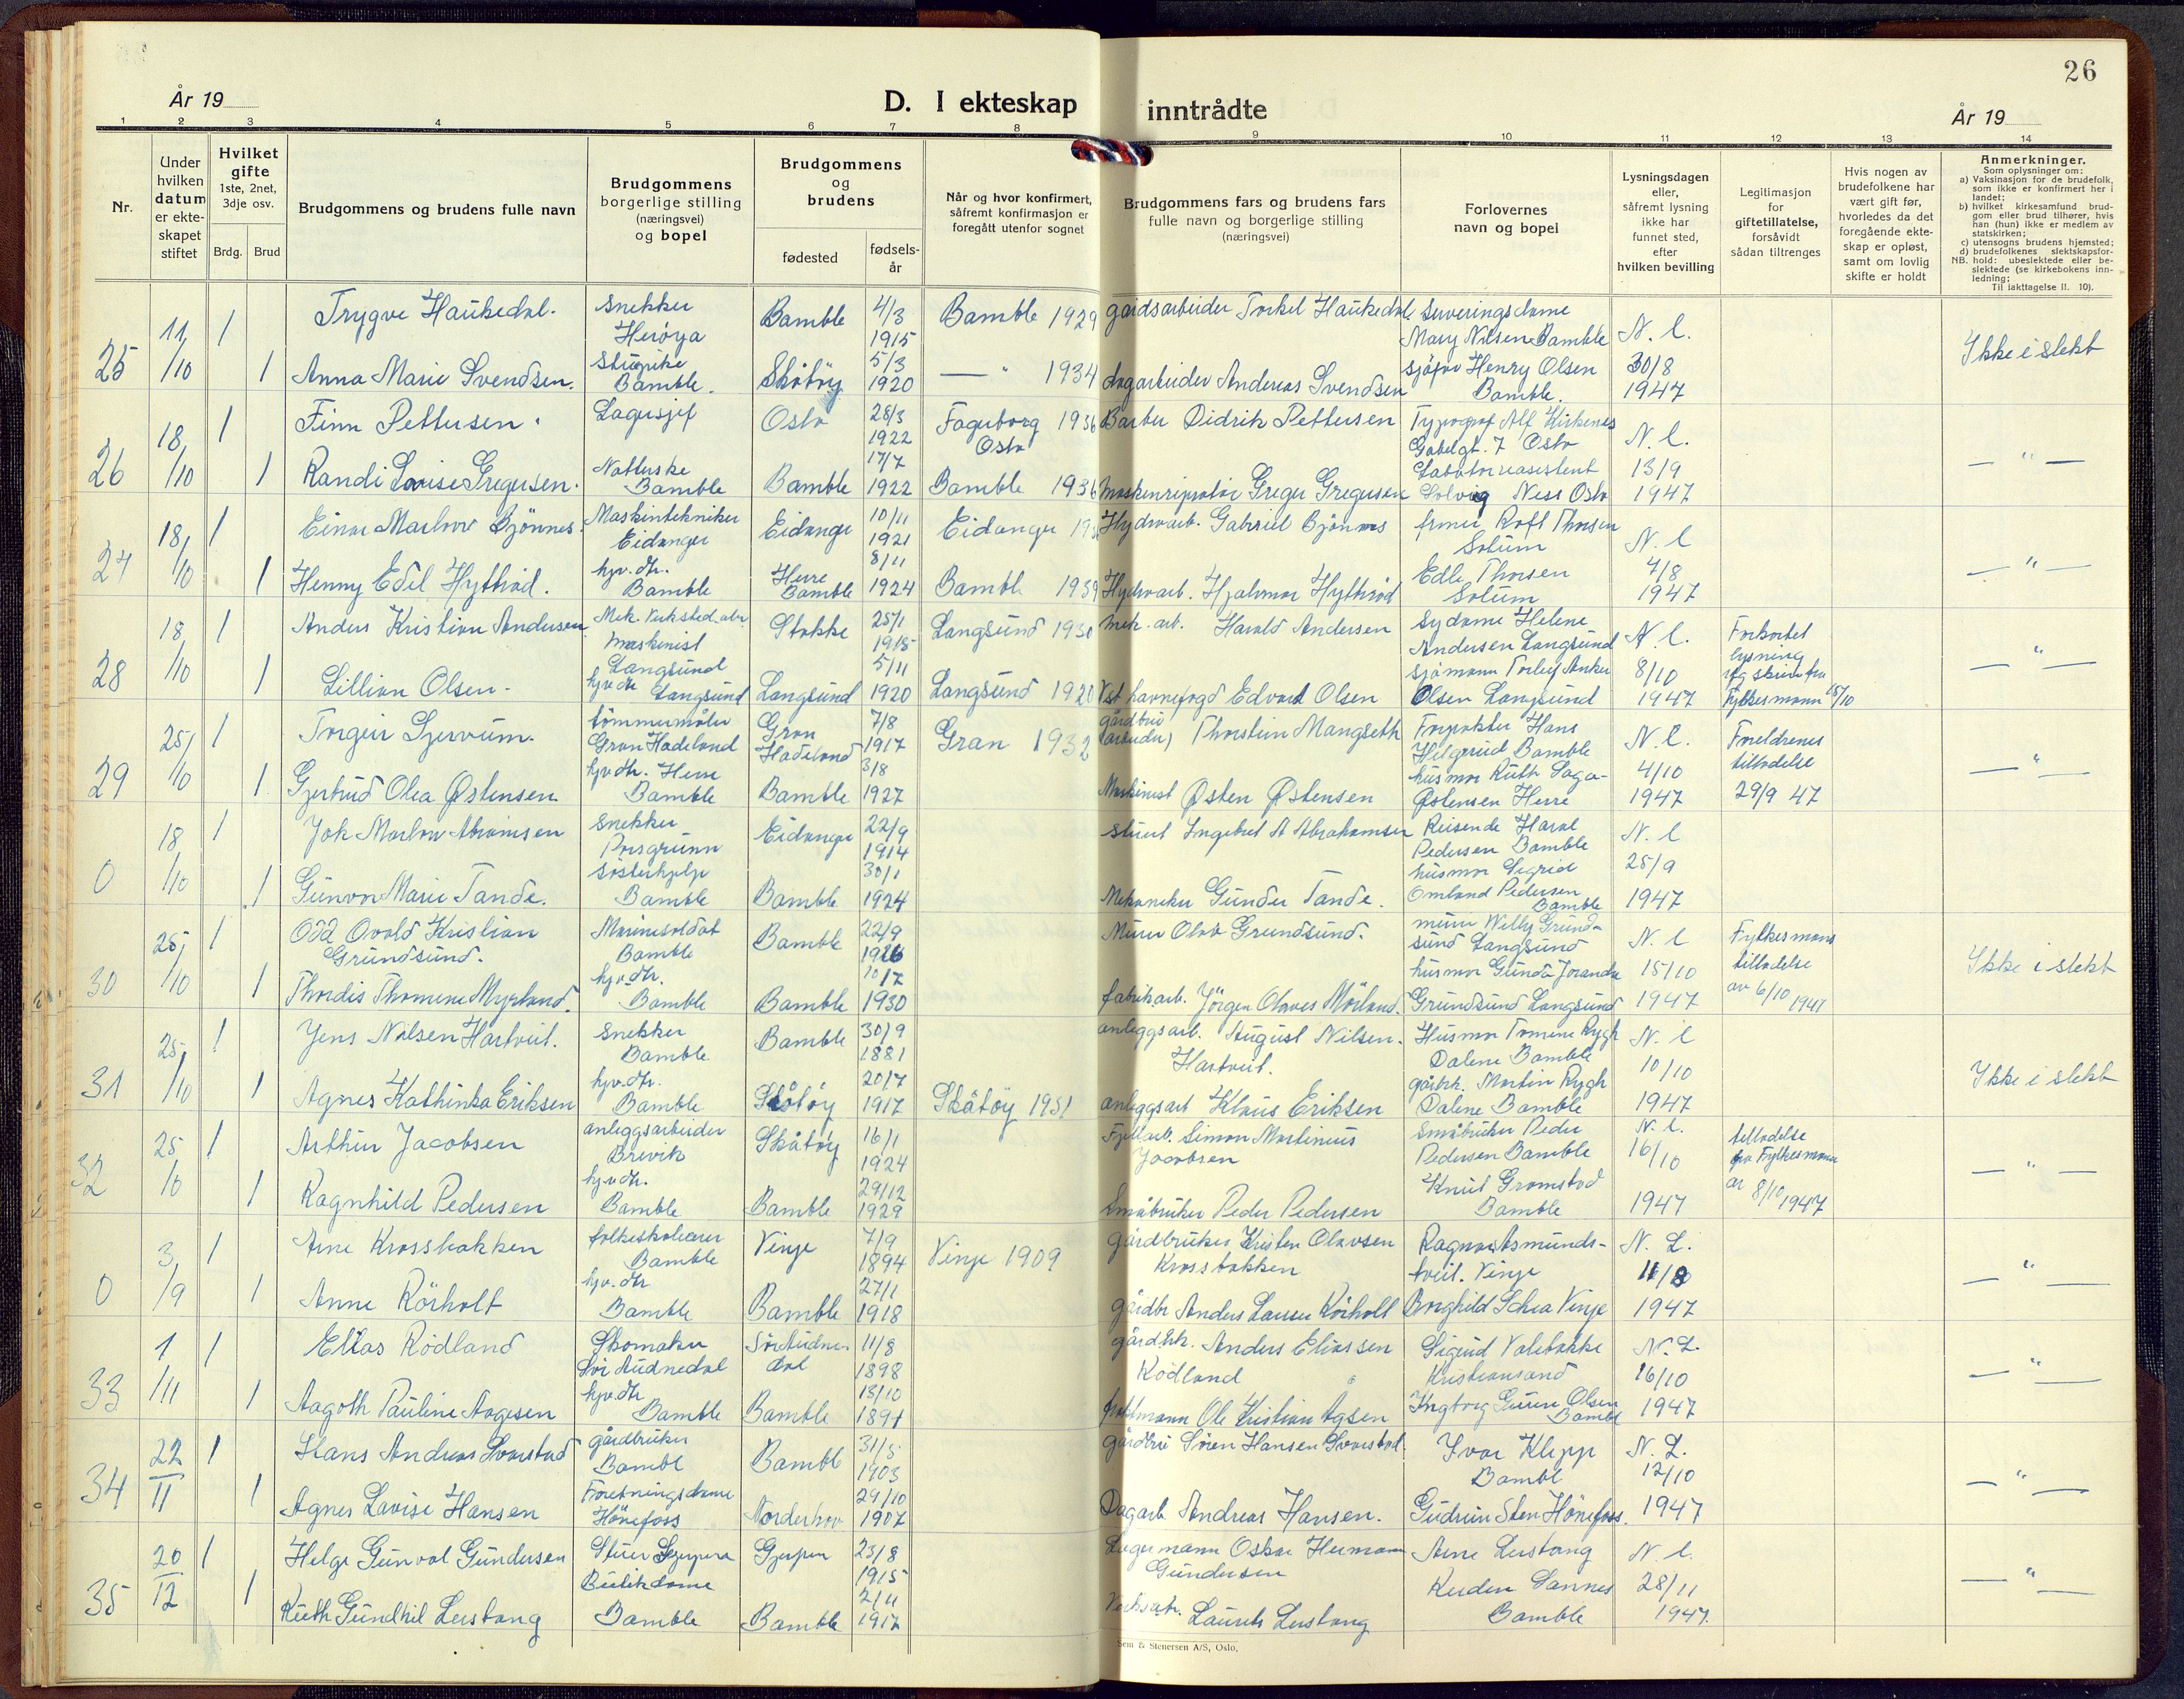 26
År 19
D. I ekteskap inntrådte
År 19
1 2 3 4 5 6 7 8 9 10 11 12 13 14
Nr.
Under hvilken datum er ekte-skapet stiftet
Hvilket gifte 1ste, 2net, 3dje osv.
Brdg. Brud
Brudgommens og brudens fulle navn
Brudgommens borgerlige stilling (næringsvei) og bopel
Brudgommens og brudens
fødested
fødsels-år
Når og hvor konfirmert, såfremt konfirmasjon er foregått utenfor sognet
Brudgommens fars og brudens fars fulle navn og borgerlige stilling (næringsvei)
Forlovernes navn og bopel
Lysningsdagen eller, såfremt lysning ikke har funnet sted, efter hvilken bevilling
Legitimasjon for giftetillatelse, forsåvidt sådan tiltrenges
Hvis nogen av brudefolkene har vært gift før, hvorledes da det foregående ekte-skap er opløst, samt om lovlig skifte er holdt
Anmerkninger.
Som oplysninger om:
a) Vaksinasjon for de brudefolk, som ikke er konfirmert her i landet;
b) hvilket kirkesamfund brud-gom eller brud tilhører, hvis han (hun) ikke er medlem av statskirken;
c) utensogns brudens hjemsted;
d) brudefolkenes slektskapsfor-
NB. hold: ubeslektede eller be-slektede (se kirkebokens inn-ledning;
Til iakttagelse II. 10).
25 11/10 1 Trygve Haukedal. Snekker Herøya Bamble 4/3 1915 Bamble 1929 gårdsarbeider Torkel Haukedal Serveringsdame Mary Nilsen Bamble N. l. Ikke i slekt
1 Anna Marie Svendsen. Bamble. Skåtøy 5/3 1920 — " 1934 dagarbeider Andreas Svendsen sjåfør Henry Olsen Bamble. 30/8 1947
26 18/10 1 Finn Pettersen. Lagersjef Oslo 28/3 1922 Fagerborg 1936 Oslo Barber Didrik Pettersen Typograf Alf Kirkenes Gabelgt. 7 Oslo N. l. — " —
1 Randi Lovise Gregersen. Bamble Bamble 17/7 1922 Bamble 1936 Greger Gregersen Solveig Ness Oslo 13/9 1947
27 18/10 1 Einar Marlow Bjønnes. Maskintekniker Eidanger Eidanger 10/11 1921 Eidanger Hydroarb. Gabriel Bjønnes Thorsen Solum N. l — " —
1 Henny Edel Hytterød. hjv. dtr. Bamble Herre Bamble 8/11 1924 Bamble 1939 Hydroarb. Hjalmar Hytterød Edle Thorsen Solum 4/8 1947
28 18/10 1 Anders Kristian Andersen Mek. Verksted. arb. Maskinist Langsund Stokke 25/1 1915 Langsund 1930 Mek. arb. Harald Andersen Sydame Helene Andersen Langsund N. l. Forkortet lysning — " —
1 Lillian Olsen. hjv dtr Langsund Langsund 5/11 1920 Langsund 1920 havnefogd Edvard Olsen sjømann Torleif Anker Olsen Langsund 8/10 1947 Fylkesmann
29 25/10 1 Torgeir tømmermåler Gran Hadeland Gran Hadeland 7/8 1917 Gran 1932 Thorstein Mangseth Forpakter Hans Helgerud Bamble N. l. Foreldrenes tilladelse — " —
1 Gjertrud Olea Østensen. hjv dtr. Herre Bamble Bamble 3/8 1927 Maskinist Østen Østensen husmor Ruth Østensen Herre 4/10 1947 29/9 47
0 18/10 1 Joh Marlow Abramsen Snekker Porsgrunn Eidanger 22/9 1914 Ingebret A Abrahamsen Reisende Haral Pedersen Bamble N. l
1 Gunvor Marie Tande. søsterhjelp Bamble Bamble 30/1 1924 Mekaniker Gunder Tande. husmor Sigrid Omland Pedersen Bamble 25/9 1947
30 25/10 1 Odd Kristian Grundsund. Marinesoldat Bamble Bamble 22/9 1926 Murer Olav Grundsund. murer Willy Grundsund Langsund N. l Fylkesmans tilladelse av 6/10 1947 Ikke i slekt
1 Thordis Thomine hjv. dtr. Bamble Bamble 10/7 1930 fabrikarb. Jörgen Olaves husmor Gunda Grundsund Langsund 15/10 1947
31 25/10 1 Jens Nilsen Hartveit. Snekker Bamble Bamble 30/9 1881 anleggsarb. August Nilsen. Hartveit. Husmor Tomine Rygh Dalene Bamble N. l Ikke i slekt
1 Agnes Kathinka Eriksen hjv. dtr. Bamble Skåtøy 20/7 1917 Skåtøy 1931 anleggsarb Klaus Eriksen gårbrk. Martin Rygh Dalene Bamble 10/10 1947
32 25/10 1 Arthur Jacobsen anleggsarbeider Brevik Skåtøy 16/1 1924 Simon Martinius Jacobsen Småbruker Peder Pedersen Bamble N. l. 16/10 tilladelse fra Fylkesmann av 8/10 1947 — " —
1 Ragnhild Pedersen hjv dtr. Bamble Bamble 29/12 1929 Småbruker Peder Pedersen Knut Gromstad Bamble 1947
0 3/9 1 Arne Krossbakken folkeskolelærer Bamble Vinje 7/9 1894 Vinje 1909 gårdbruker Kristen Olavsen Krossbakken Ragnar Asmundstveit. Vinje N. L. 11/8 — " —
1 Anne Rörholt hjv. dtr Bamble Bamble 27/1 1918 gårdbr Anders Larsen Rörholt Borghild Schea Vinje 1947
33 1/11 1 Elias Rödland Skomaker Sör Audnedal Sör Audnedal 11/8 1898 gårdbrk. Anders Eliassen Rödland Sigurd Kristiansand N. L. — " —
1 Aagoth Pauline Aagesen hjv. dtr Bamble Bamble 13/10 1891 Ole Kristian Agsen Ingborg Olsen Bamble 16/10 1947
34 22/11 1 Hans Andreas gårdbruker Bambl Bambl 31/5 1903 gårdbr Sören Hansen Ivar Klepp Bambl N. L. 12/10 — " —
1 Agnes Lovise Hansen Forretningsdame Hönefoss Norderhov 29/10 1907 Dagarb Andreas Hansen. Gudrun Sten Hönefoss. 1947
35 20/12 1 Helge Gunval Gundersen Gjerpen 23/8 1915 Lagermann Oskar Herman Gundersen Arne Lustang N. l. — " —
1 Ruth Gundhil Lustang Butikdame Bamble Bamble 2/11 1917 Laurits Lustang Reidun Sannes Bamble 28/11 1947.
Sem & Stenersen A/S, Oslo.